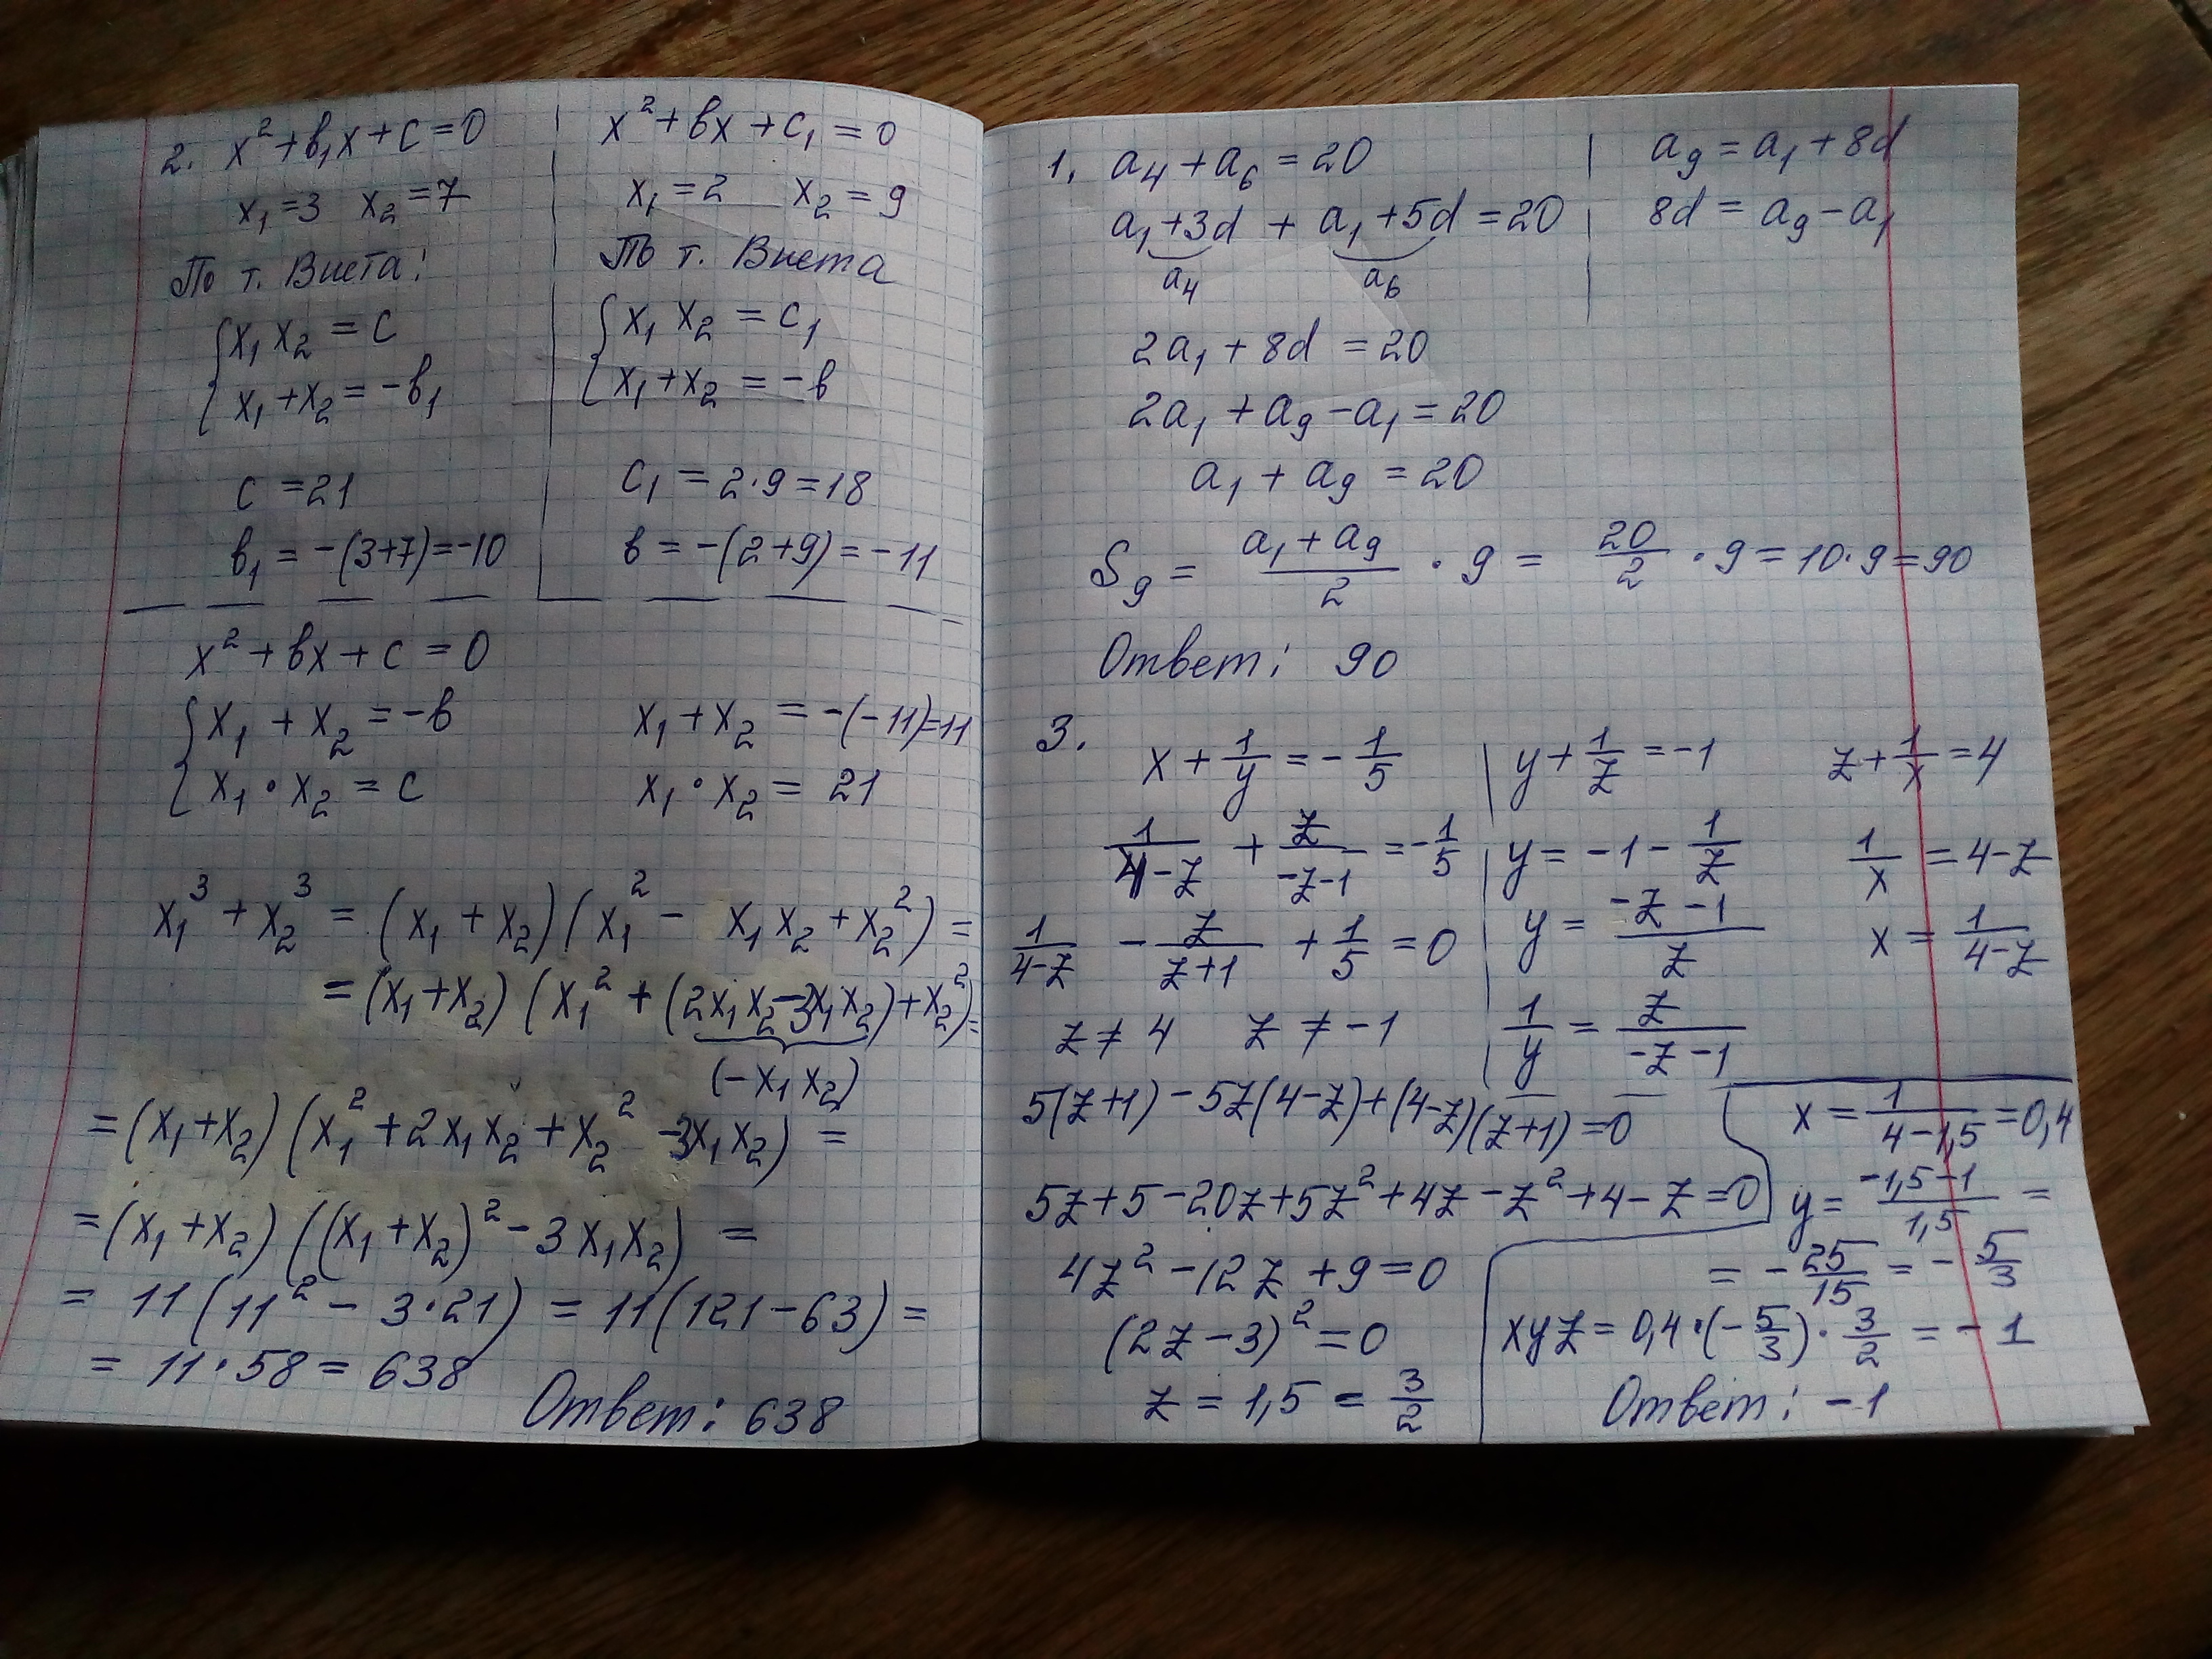 2. x² + b₁x + c = 0
x₁ = 3 x₂ = 7
По т. Виета:
x₁ x₂ = c
x₁ + x₂ = -b₁
c = 21
b₁ = -(3+7) = -10
x² + bx + c₁ = 0
x₁ = 2 x₂ = 9
По т. Виета
x₁ x₂ = c₁
x₁ + x₂ = -b
c₁ = 2·9 = 18
b = -(2+9) = -11
x² + bx + c = 0
x₁ + x₂ = -b x₁ + x₂ = -(-11) = 11
x₁ · x₂ = c x₁ · x₂ = 21
x₁³ + x₂³ = (x₁ + x₂)(x₁² - x₁x₂ + x₂²) =
= (x₁+x₂)(x₁² + (2x₁x₂ - 3x₁x₂) + x₂²) =
(-x₁x₂)
= (x₁+x₂)(x₁² + 2x₁x₂ + x₂² - 3x₁x₂) =
= (x₁+x₂)((x₁+x₂)² - 3x₁x₂) =
= 11(11² - 3·21) = 11(121-63) =
= 11·58 = 638
Ответ: 638
1. a₄ + a₆ = 20
a₁+3d + a₁+5d = 20
a₄ a₆
2a₁ + 8d = 20
2a₁ + a₉ - a₁ = 20
a₁ + a₉ = 20
a₉ = a₁ + 8d
8d = a₉ - a₁
S₉ = (a₁ + a₉)/2 · 9 = 20/2 · 9 = 10·9 = 90
Ответ: 90
3.
x + 1/y = -1/5
1/(4-z) + z/(-z-1) = -1/5
1/(4-z) - z/(z+1) + 1/5 = 0
z ≠ 4 z ≠ -1
y + 1/z = -1
y = -1 - 1/z
y = (-z-1)/z
1/y = z/(-z-1)
z + 1/x = 4
1/x = 4-z
x = 1/(4-z)
5(z+1) - 5z(4-z) + (4-z)(z+1) = 0
5z+5-20z+5z²+4z-z²+4-z = 0
4z² - 12z + 9 = 0
(2z-3)² = 0
z = 1,5 = 3/2
x = 1/(4-1,5) = 0,4
y = (-1,5-1)/1,5 =
= -25/15 = -5/3
xyz = 0,4·(-5/3)·3/2 = -1
Ответ: -1